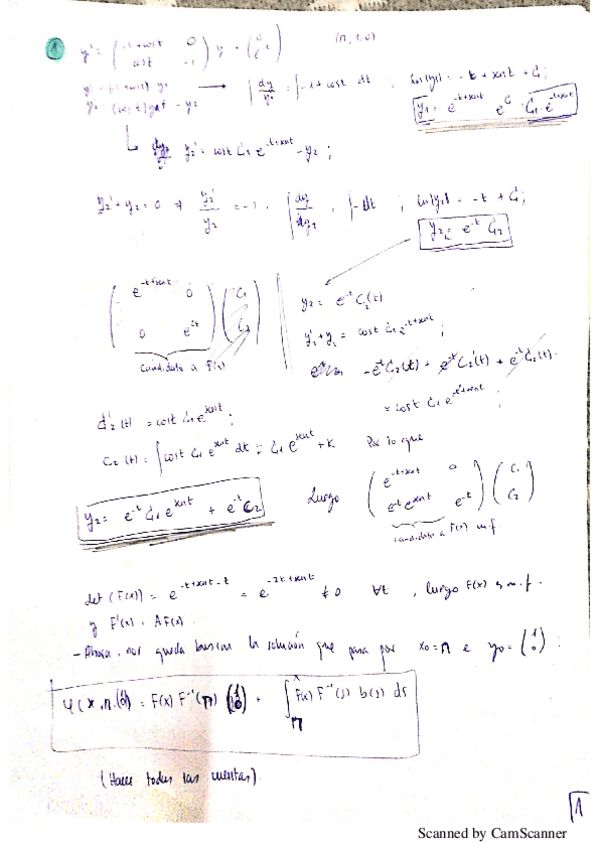 1 y' = ( -1+cost 0 / cost -1 ) y + ( 0 / e^-t ) (π, 1, 0)
y1' = (-1+cost) y1 → ∫ dy/y1 = ∫ -1 + cost dt ; ln|y1| = -t + sent + C1 ;
y2' = (cost) y1 - y2
y1 = e^{-t+sent} e^{C1} = C1 · e^{-t+sent}
y2' = cost C1 e^{-t+sent} - y2 ;
y2' + y2 = 0 ⇒ y2'/y2 = -1 , ∫ dy2/y2 = ∫ -dt ; ln|y2| = -t + C2 ;
y2 = e^-t C2
( e^{-t+sent} 0 / 0 e^-t ) ( C1 / C2 )
candidato a F(x)
y2 = e^-t C2(t)
= cost C1 e^{-t+sent} ;
-e^-t C2(t) + e^-t C2'(t) + e^-t C2(t)
= cost C1 e^{-t+sent} ;
C2'(t) = cost C1 e^{sent} ;
C2(t) = ∫ cost C1 e^{sent} dt = C1 e^{sent} + K Por lo que
y2 = e^-t C1 e^{sent} + e^-t C2
Luego ( e^{-t+sent} 0 / e^-t e^{sent} e^-t ) ( C1 / C2 )
candidato a F(x) m.f
det (F(x)) = e^{-t+sent-t} = e^{-2t+sent} ≠ 0 ∀t , luego F(x) es m.f.
y F'(x) = A F(x).
- Ahora, nos queda buscar la solución que pasa por x0 = π e y0 = ( 1 / 0 ) :
φ(x, π, (1 / 0)) = F(x) F^-1(π) (1 / 0) + ∫_π^x F(x) F^-1(s) b(s) ds
(Hacer todas las cuentas)
1
Scanned by CamScanner